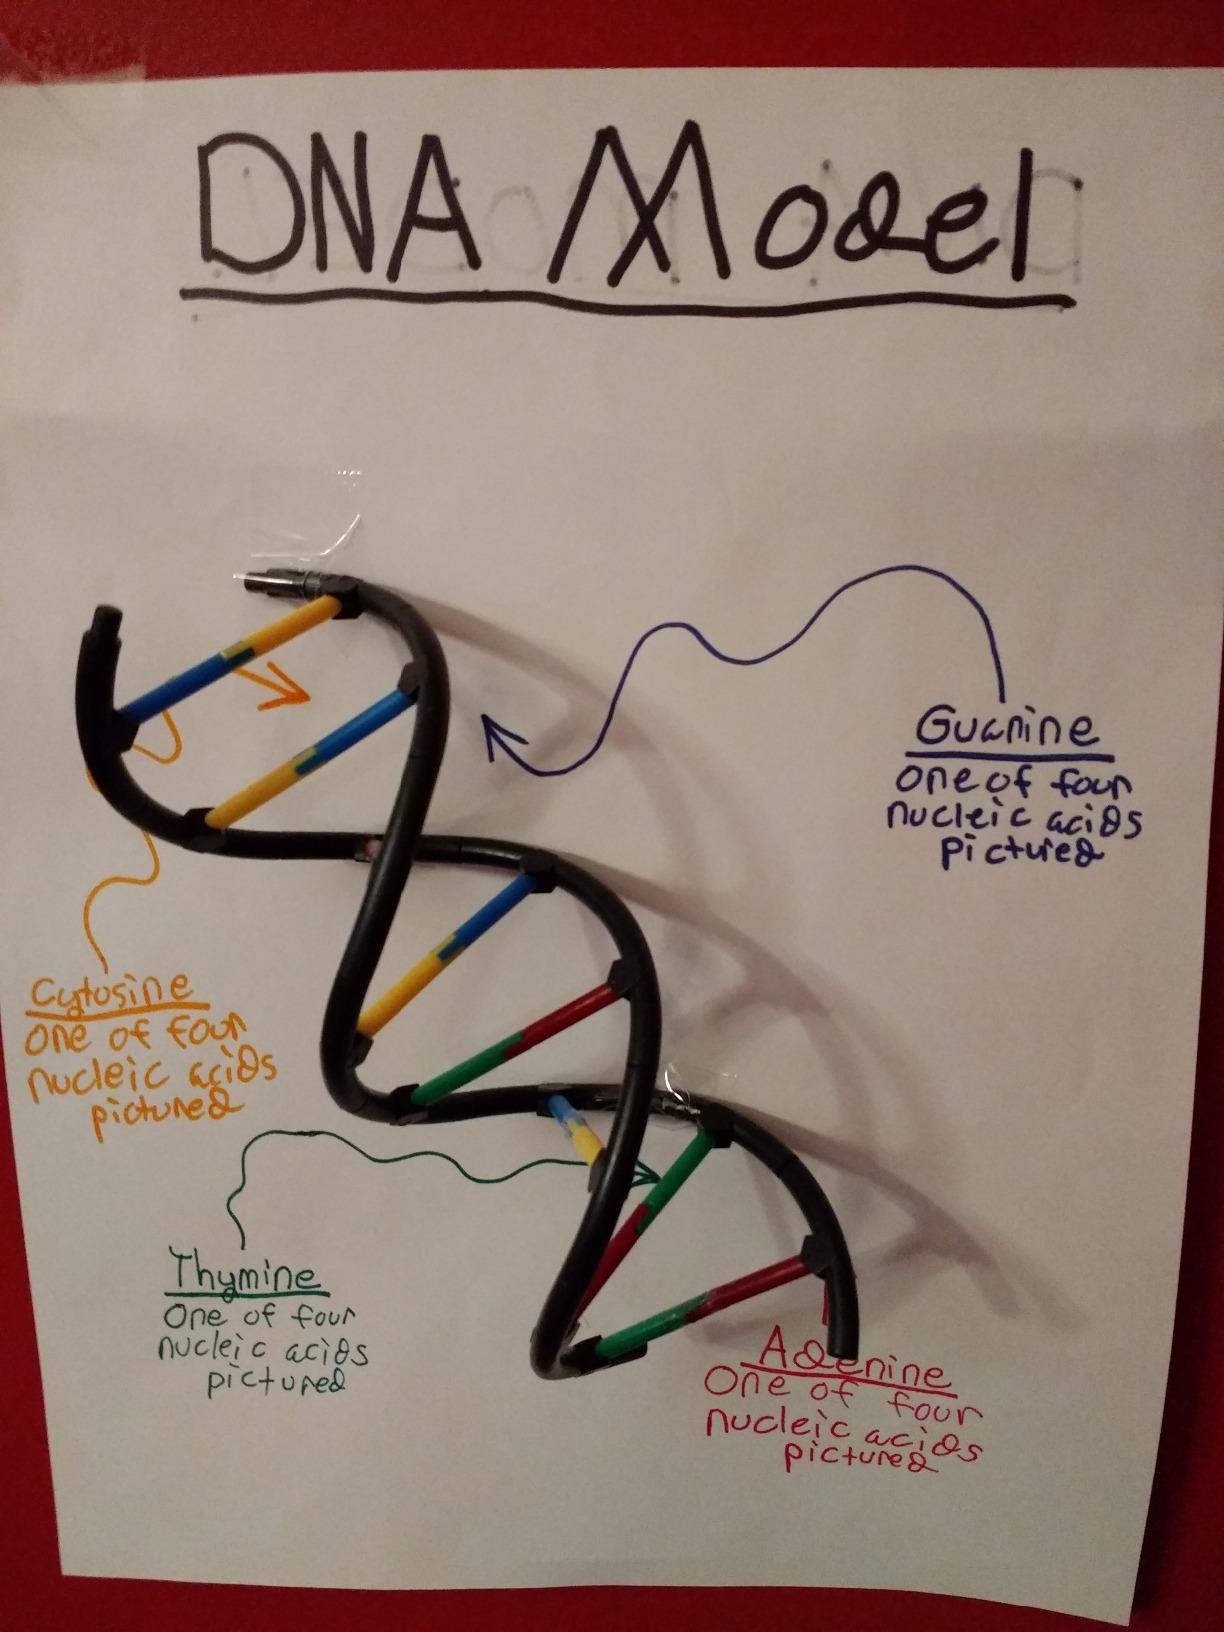 DNA Model
Guanine
One of four
nucleic acids
pictured
Cytosine
One of four
nucleic acids
pictured
Thymine
One of four
nucleic acids
pictured
Adenine
One of four
nucleic acids
pictured